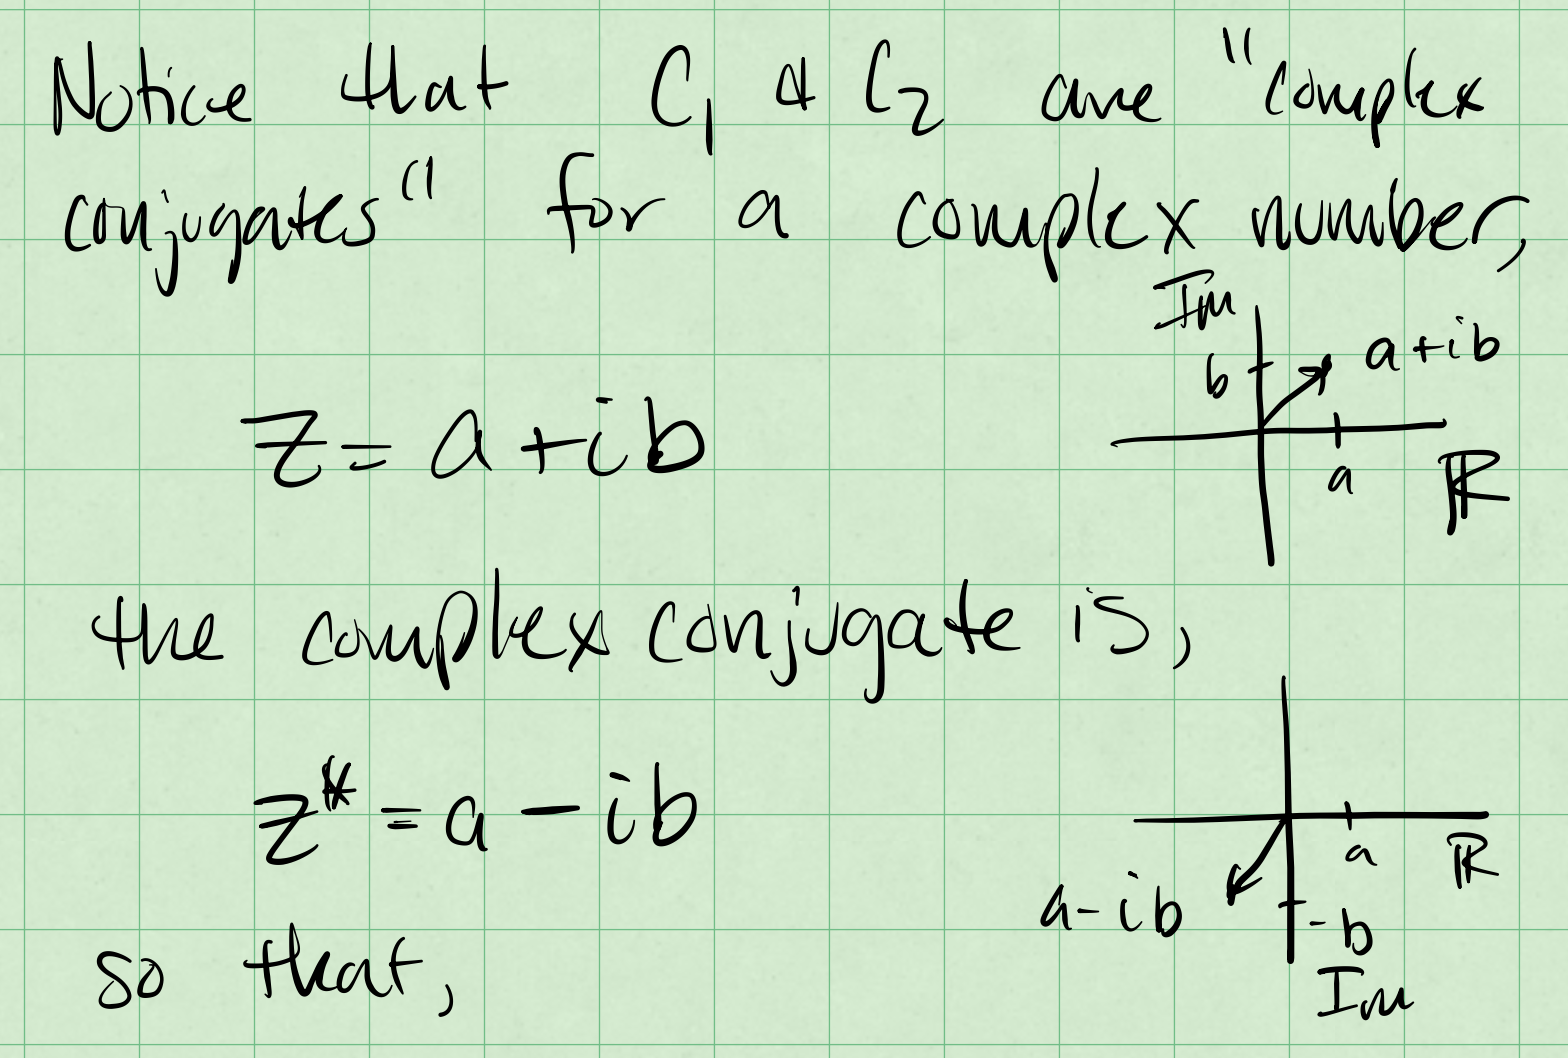 Notice that C₁ & C₂ are "complex
conjugates" for a complex number,
Im
b
a+ib
z = a+ib
a
ℝ
the complex conjugate is,
z* = a - ib
a
ℝ
a-ib
-b
Im
so that,